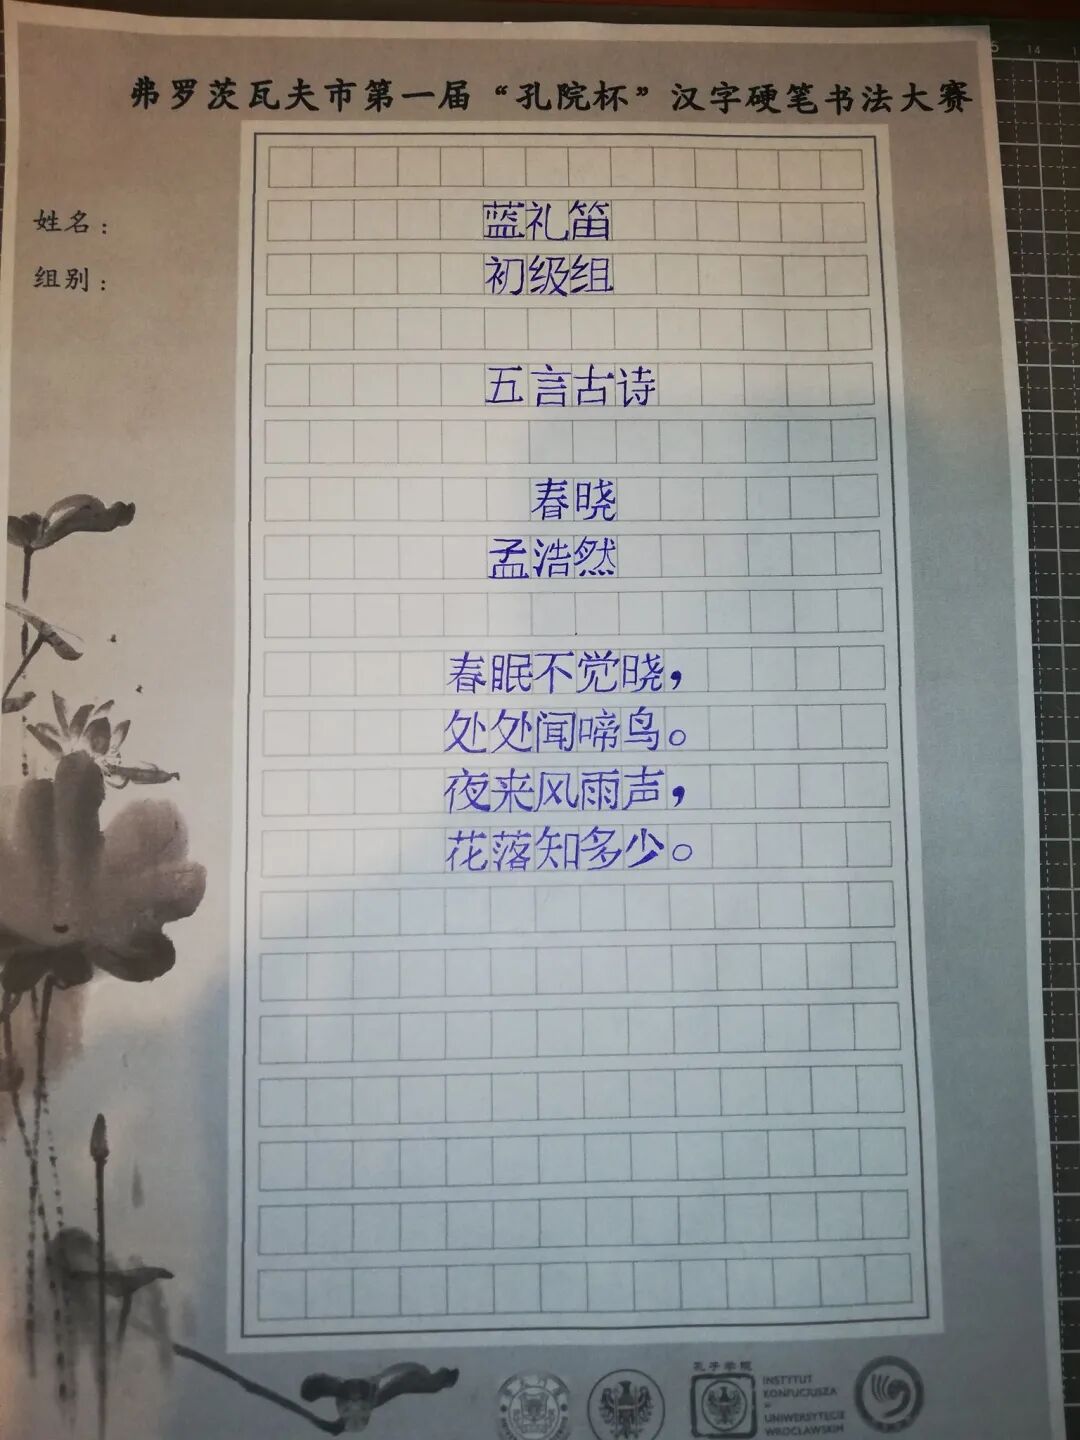 弗罗茨瓦夫市第一届“孔院杯”汉字硬笔书法大赛
姓名：
蓝礼笛
组别：
初级组
五言古诗
春晓
孟浩然
春眠不觉晓，
处处闻啼鸟。
夜来风雨声，
花落知多少。
孔子学院
INSTYTUT
KONFUCJUSZA
W
UNIWERSYTECIE
WROCŁAWSKIM
5 14 1